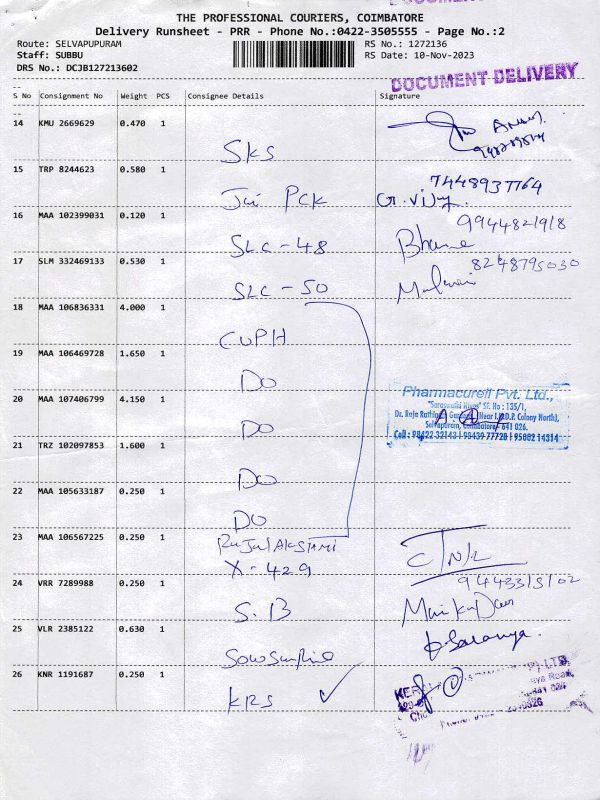 DOCUMENT DELIVERY
THE PROFESSIONAL COURIERS, COIMBATORE
Delivery Runsheet - PRR - Phone No.:0422-3505555 - Page No.:2
Route: SELVAPUPURAM
RS No.: 1272136
Staff: SUBBU
RS Date: 10-Nov-2023
DRS No.: DCJB127213602
DOCUMENT DELIVERY
S No Consignment No Weight PCS Consignee Details Signature
14 KMU 2669629 0.470 1
SKS
15 TRP 8244623 0.580 1 7448937764
Jai PCK G. Vijay.
16 MAA 102399031 0.120 1 9944821918
SLC - 48
17 SLM 332469133 0.530 1 8248795030
SLC - 50
18 MAA 106836331 4.000 1
CUPH
19 MAA 106469728 1.650 1
DO
20 MAA 107406799 4.150 1
DO
Pharmacureil Pvt. Ltd.,
"Saraswathi Nivas" Sf. No : 135/1,
Selvapuram, Coimbatore - 641 026.
Cell : 98422 32143 | 98439 77728 | 95002 14314
21 TRZ 102097853 1.600 1
DO
22 MAA 105633187 0.250 1
DO
23 MAA 106567225 0.250 1
X - 429
24 VRR 7289988 0.250 1
S. B
25 VLR 2385122 0.630 1
Saranya.
26 KNR 1191687 0.250 1
KRS